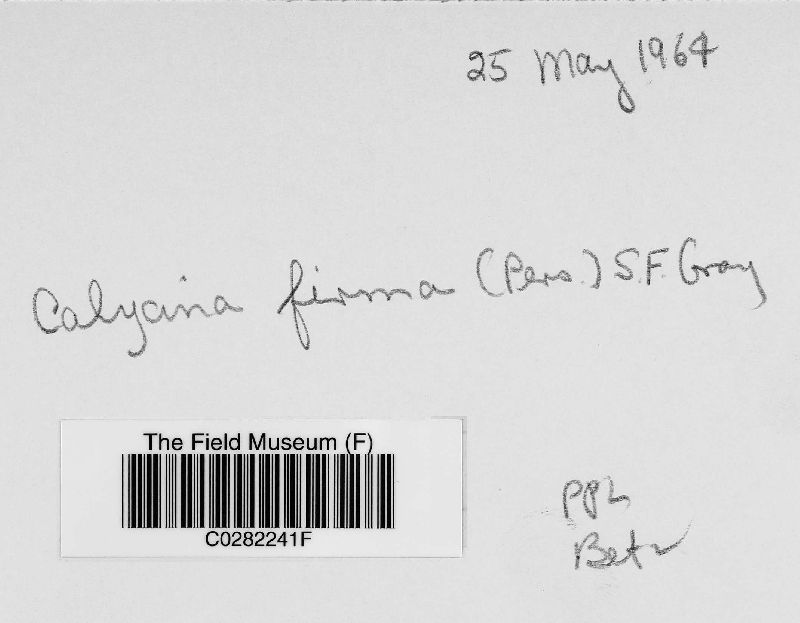 25 May 1964
Calycina firma (Pers.) S.F. Gray
The Field Museum (F)
C0282241F
Betv